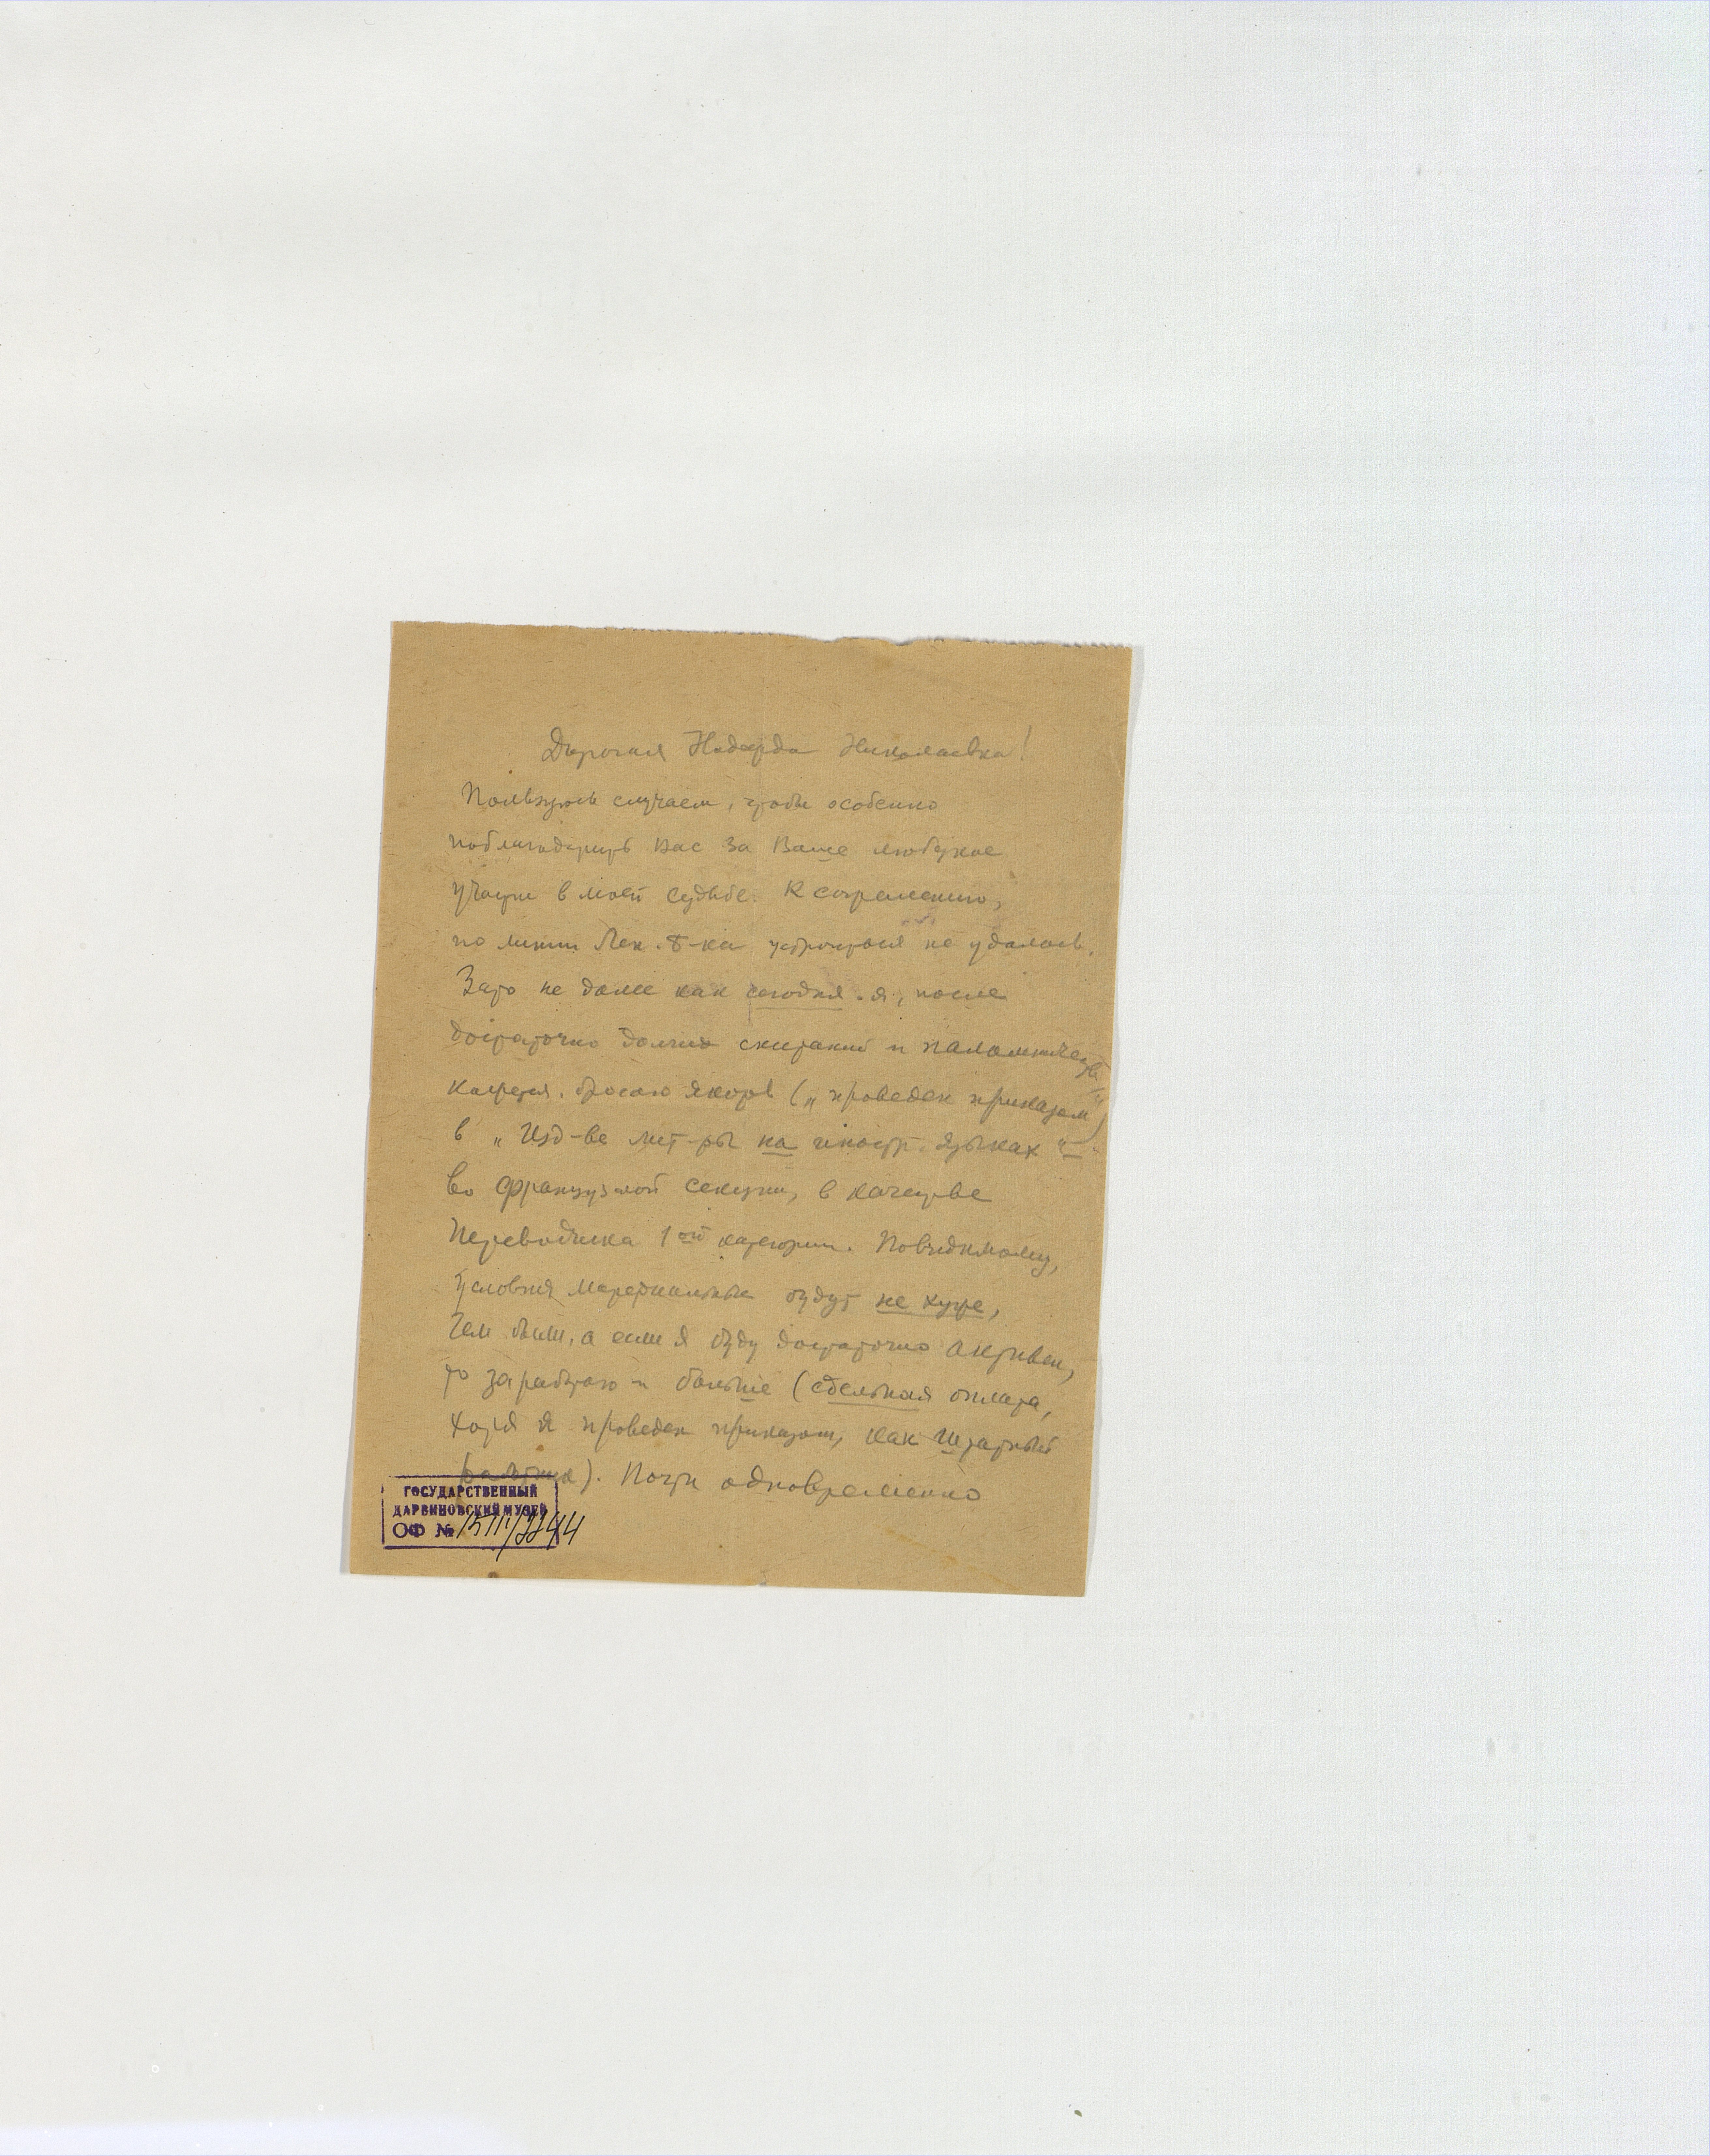 Дорогая Надежда Николаевна!
Пользуюсь случаем, чтобы особенно
поблагодарить Вас за Ваше любезное
участие в моей судьбе. К сожалению,
по линии Лен. б-ки устроиться не удалось.
Зато не далее как сегодня я, после
достаточно долгих скитаний и паломничеств
кажется, бросаю якорь („проведен приказом“)
в „Изд-ве лит-ры на иностр. языках“ –
во французской секции, в качестве
переводчика 1ой категории. Повидимому,
условия материальные будут не хуже,
чем были, а если я буду достаточно активен,
то заработаю и больше (сдельная оплата,
хотя я проведен приказом, как штатный
работник). Почти одновременно
ГОСУДАРСТВЕННЫЙ
ДАРВИНОВСКИЙ МУЗЕЙ
ОФ №